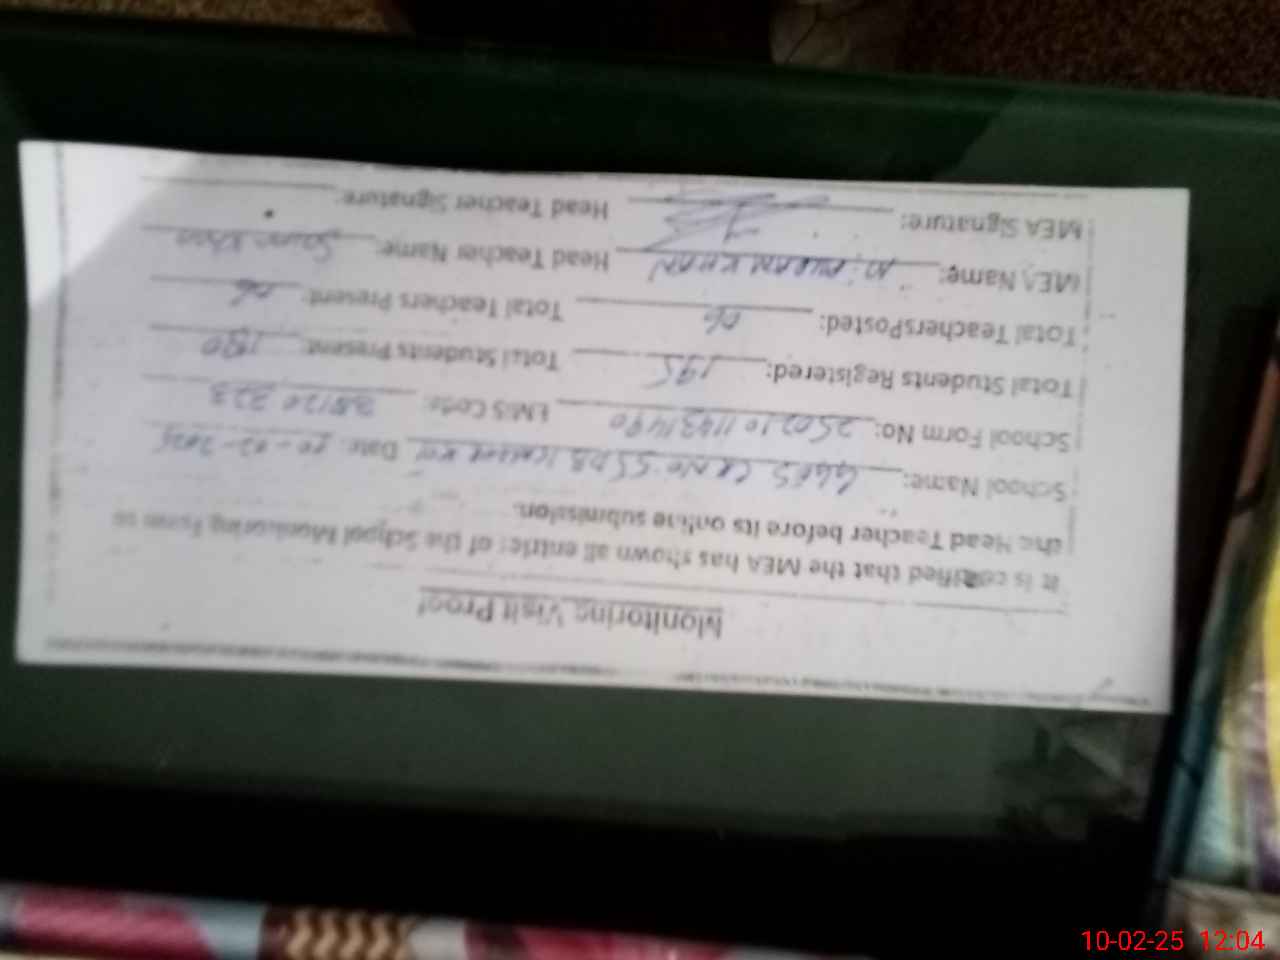 Monitoring Visit Proof
It is certified that the MEA has shown all entries of the School Monitoring Form to
the Head Teacher before its online submission.
School Name: GGES Date: 10-02-2025
School Form No: EMIS Code:
Total Students Registered: 195 Total Students Present: 180
Total Teachers Posted: 06 Total Teachers Present: 06
MEA Name: KHAN Head Teacher Name: Khan
MEA Signature: Head Teacher Signature:
10-02-25 12:04